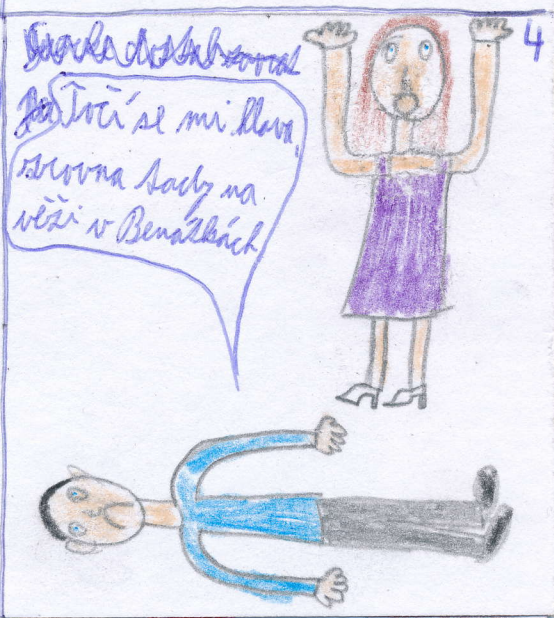 4
Točí se mi hlava,
zrovna tady na
věži v Benátkách